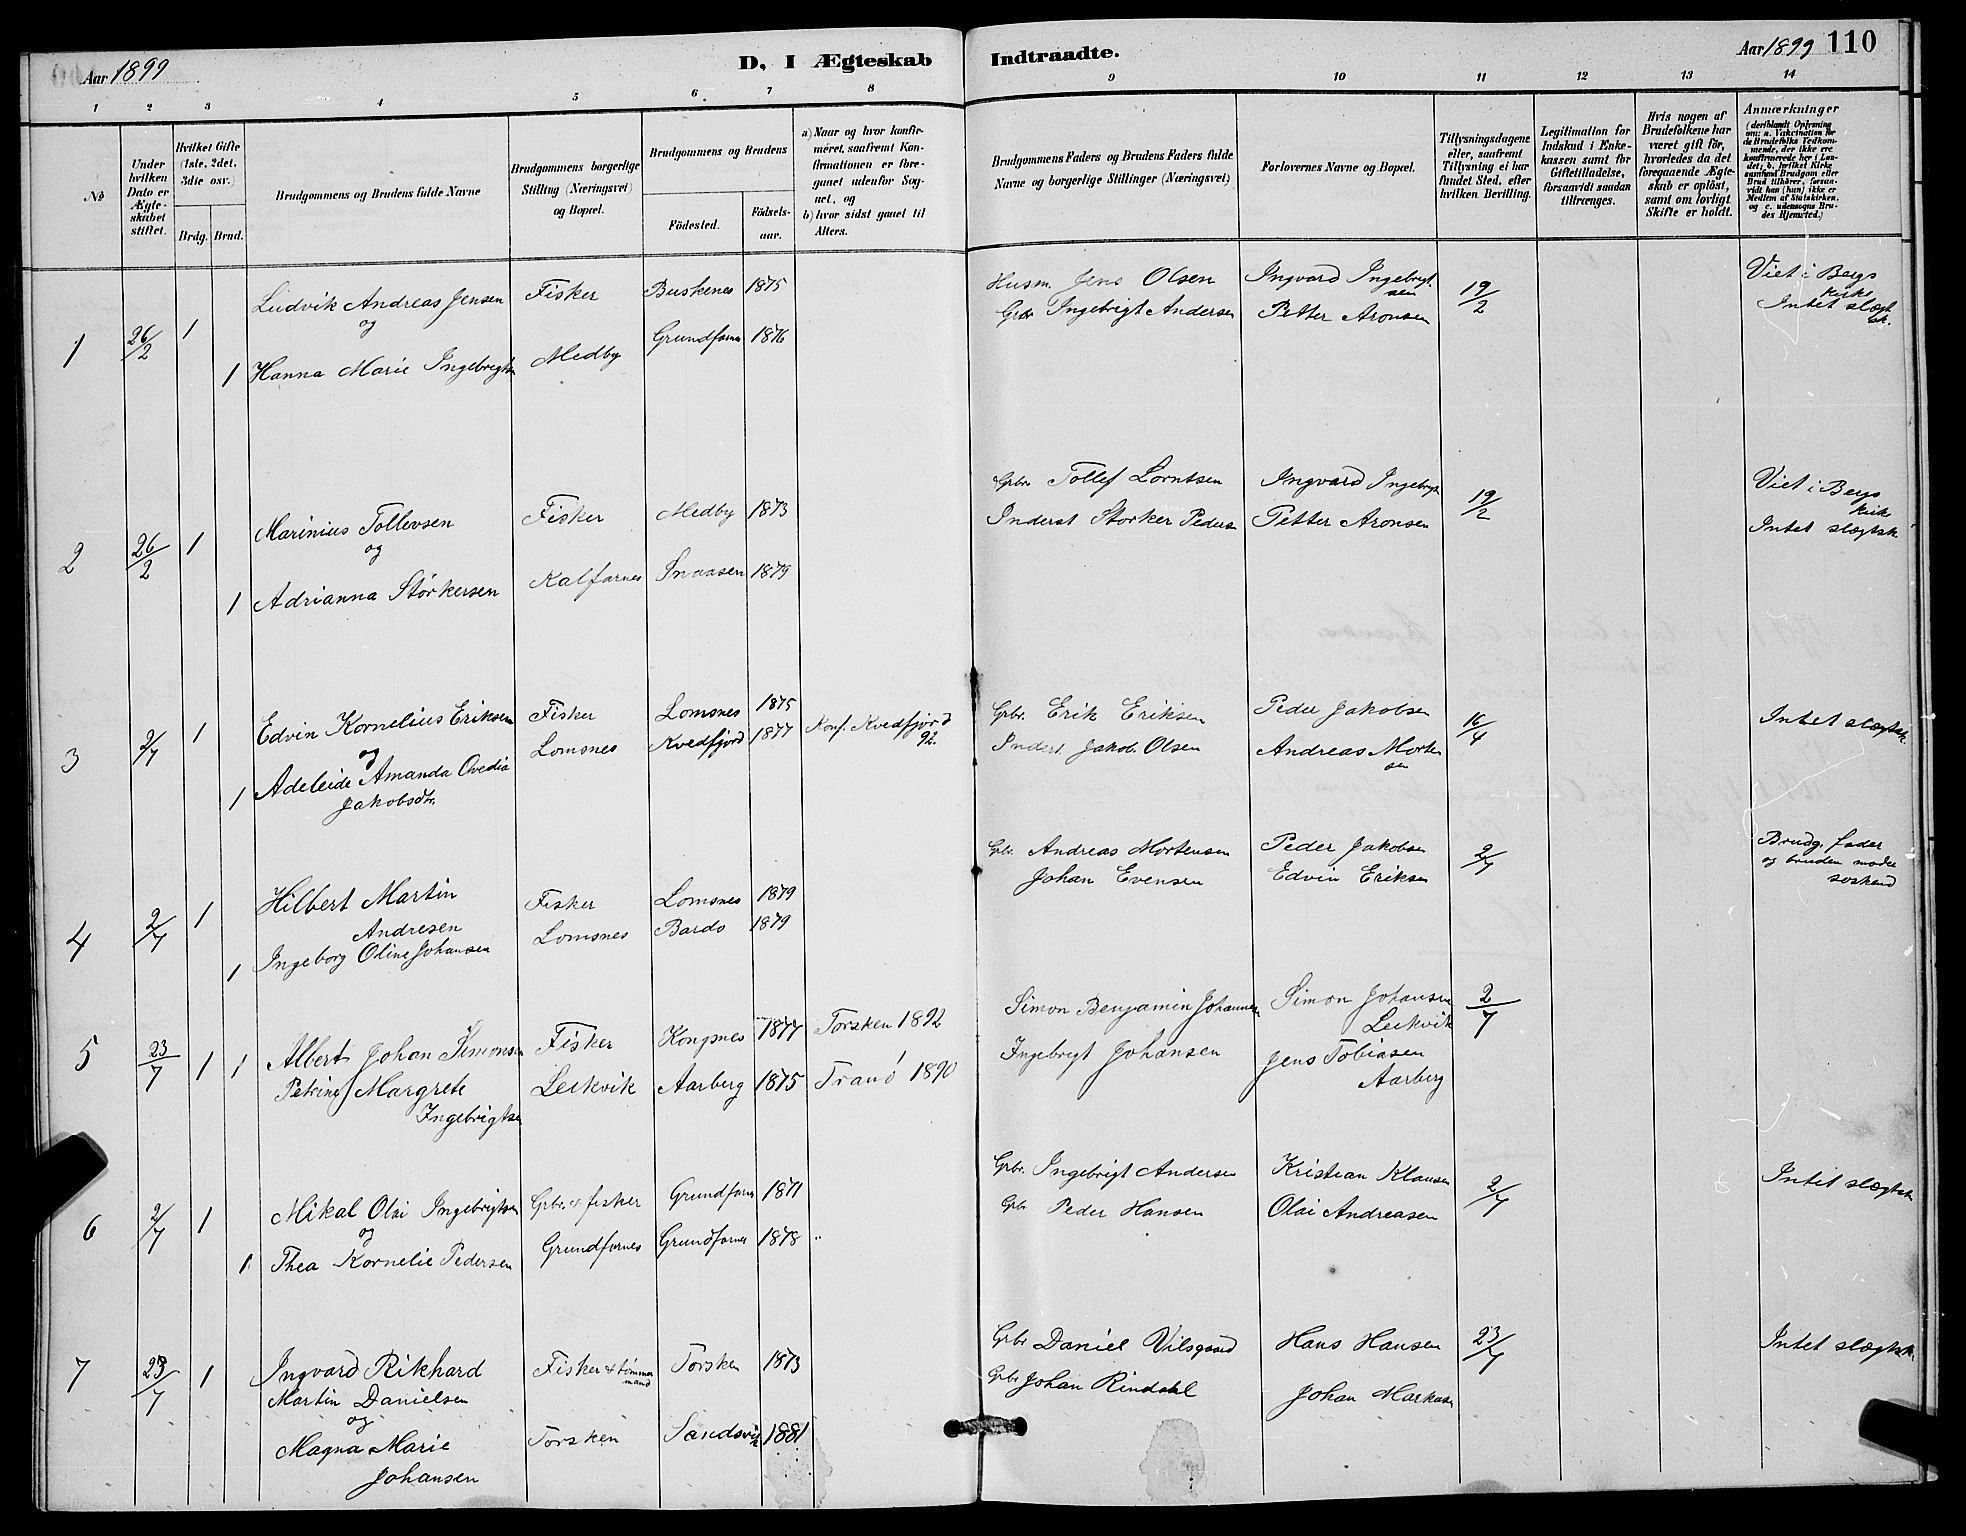 Aar 1899
D, I Ægteskab
Indtraadte.
Aar 1899 110
1 2 3 4 5 6 7 8 9 10 11 12 13 14
No
Under
hvilken
Dato er
Ægte-
skabet
stiftet.
Hvilket Gifte
(1ste, 2det,
3die osv.)
Brdg. Brud.
Brudgommens og Brudens fulde Navne
Brudgommens borgerlige
Stilling (Næringsvei)
og Bopæl.
Brudgommens og Brudens
Födested.
Födsels-
aar.
a) Naar og hvor konfir-
meret, saafremt Kon-
firmationen er fore-
gaaet udenfor Sog-
net, og
b) hvor sidst gaaet til
Alters.
Brudgommens Faders og Brudens Faders fulde
Navne og borgerlige Stillinger (Næringsvei)
Forlovernes Navne og Bopæl.
Tillysningsdagene
eller, saafremt
Tillysning ei har
fundet Sted, efter
hvilken Bevilling.
Legitimation for
Indskud i Enke-
kassen samt for
Giftetilladelse,
forsaavidt saadan
tiltrænges.
Hvis nogen af
Brudefolkene har
været gift för,
hvorledes da det
foregaaende Ægte-
skab er oplöst,
samt om lovligt
Skifte er holdt.
Anmærkninger
(deriblandt Oplysning
om: a. Vakcination for
de Brudefolks Vedkom-
mende, der ikke ere
konfirmerede her i Lan-
det; b. hvilket Kirke
samfund Brudgom eller
Brud tilhörer, forsaa-
vidt han (hun) ikke er
Medlem af Statskirken,
og c. udensogns Bru-
des Hjemsted.)
1 26/2 1 Ludvik Andreas Jensen Fisker Buskenes 1875 Husm. Jens Olsen Ingvard Ingebrigt- 19/2 Viet i Bergs
sen kirke
og Grundfarnes 1876 Gbr. Ingebrigt Andersen Petter Aronsen Intet slægt
sk.
1 Hanna Marie Ingebrigtsn Medby
2 26/2 1 Marinius Tollevsen Fisker Medby 1873 Gbr. Tollef Lorntsen Ingvard Ingebrigt 19/2 Viet i Bergs
kirke
og Inderst Storker Peders Petter Aronsen Intet slægtsk.
1 Adrianna Störkersen Kalfarnes Snaasen 1879
3 2/7 1 Edvin Kornelius Eriksen Fisker Lomsnes 1875 Gbr. Erik Eriksen Peder Jakobsen 16/4 Intet slægtsk.
og Lomsnes Kvedfjord 1877 Konf. Kvedfjord
92. Inderst Jakob Olsen Andreas Morten
sen
1 Adeleide Amanda Ovedia
Jakobsdtr.
4 2/7 1 Hilbert Martin Fisker Lomsnes 1879 Gbr. Andreas Mortensen Peder Jakobsen 2/7 Brudg. fader
Andresen Lomsnes Bardo 1879 Johan Evensen Edvin Eriksen og bruden moder
søskend
1 Ingeborg Oline Johansen
5 23/7 1 1 Albert Johan Simonsen Fisker Kongsnes 1877 Torsken 1892 Simon Benjamin Johannes Simon Johansen 2/7
Leikvik
Petrine Margrete Leikvik Aarberg 1875 Tranö 1890 Ingebrigt Johansen Jens Tobiasen
Ingebrigtsen Aarberg
6 2/7 1 Mikal Olai Ingebrigtsen Gbr. & fisker Grundfarnes 1871 Gbr. Ingebrigt Andersen Kristian Klausen 2/7 Intet slægtsk
og Grundfarnes Grundfarnes 1878 " Gbr Peder Hansen Olai Andreasen
1 Thea Kornelie Pedersen
7 23/7 1 Ingvard Rikhard Fisker & tømmer
mand Torsken 1873 Gbr Daniel Vilsgaard Hans Hansen 23/7 Intet slægtsk.
Martin Danielsen Gbr Johan Rindahl Johan Markusn
og
Magna Marie Torsken Sandsvik 1881
Johansen